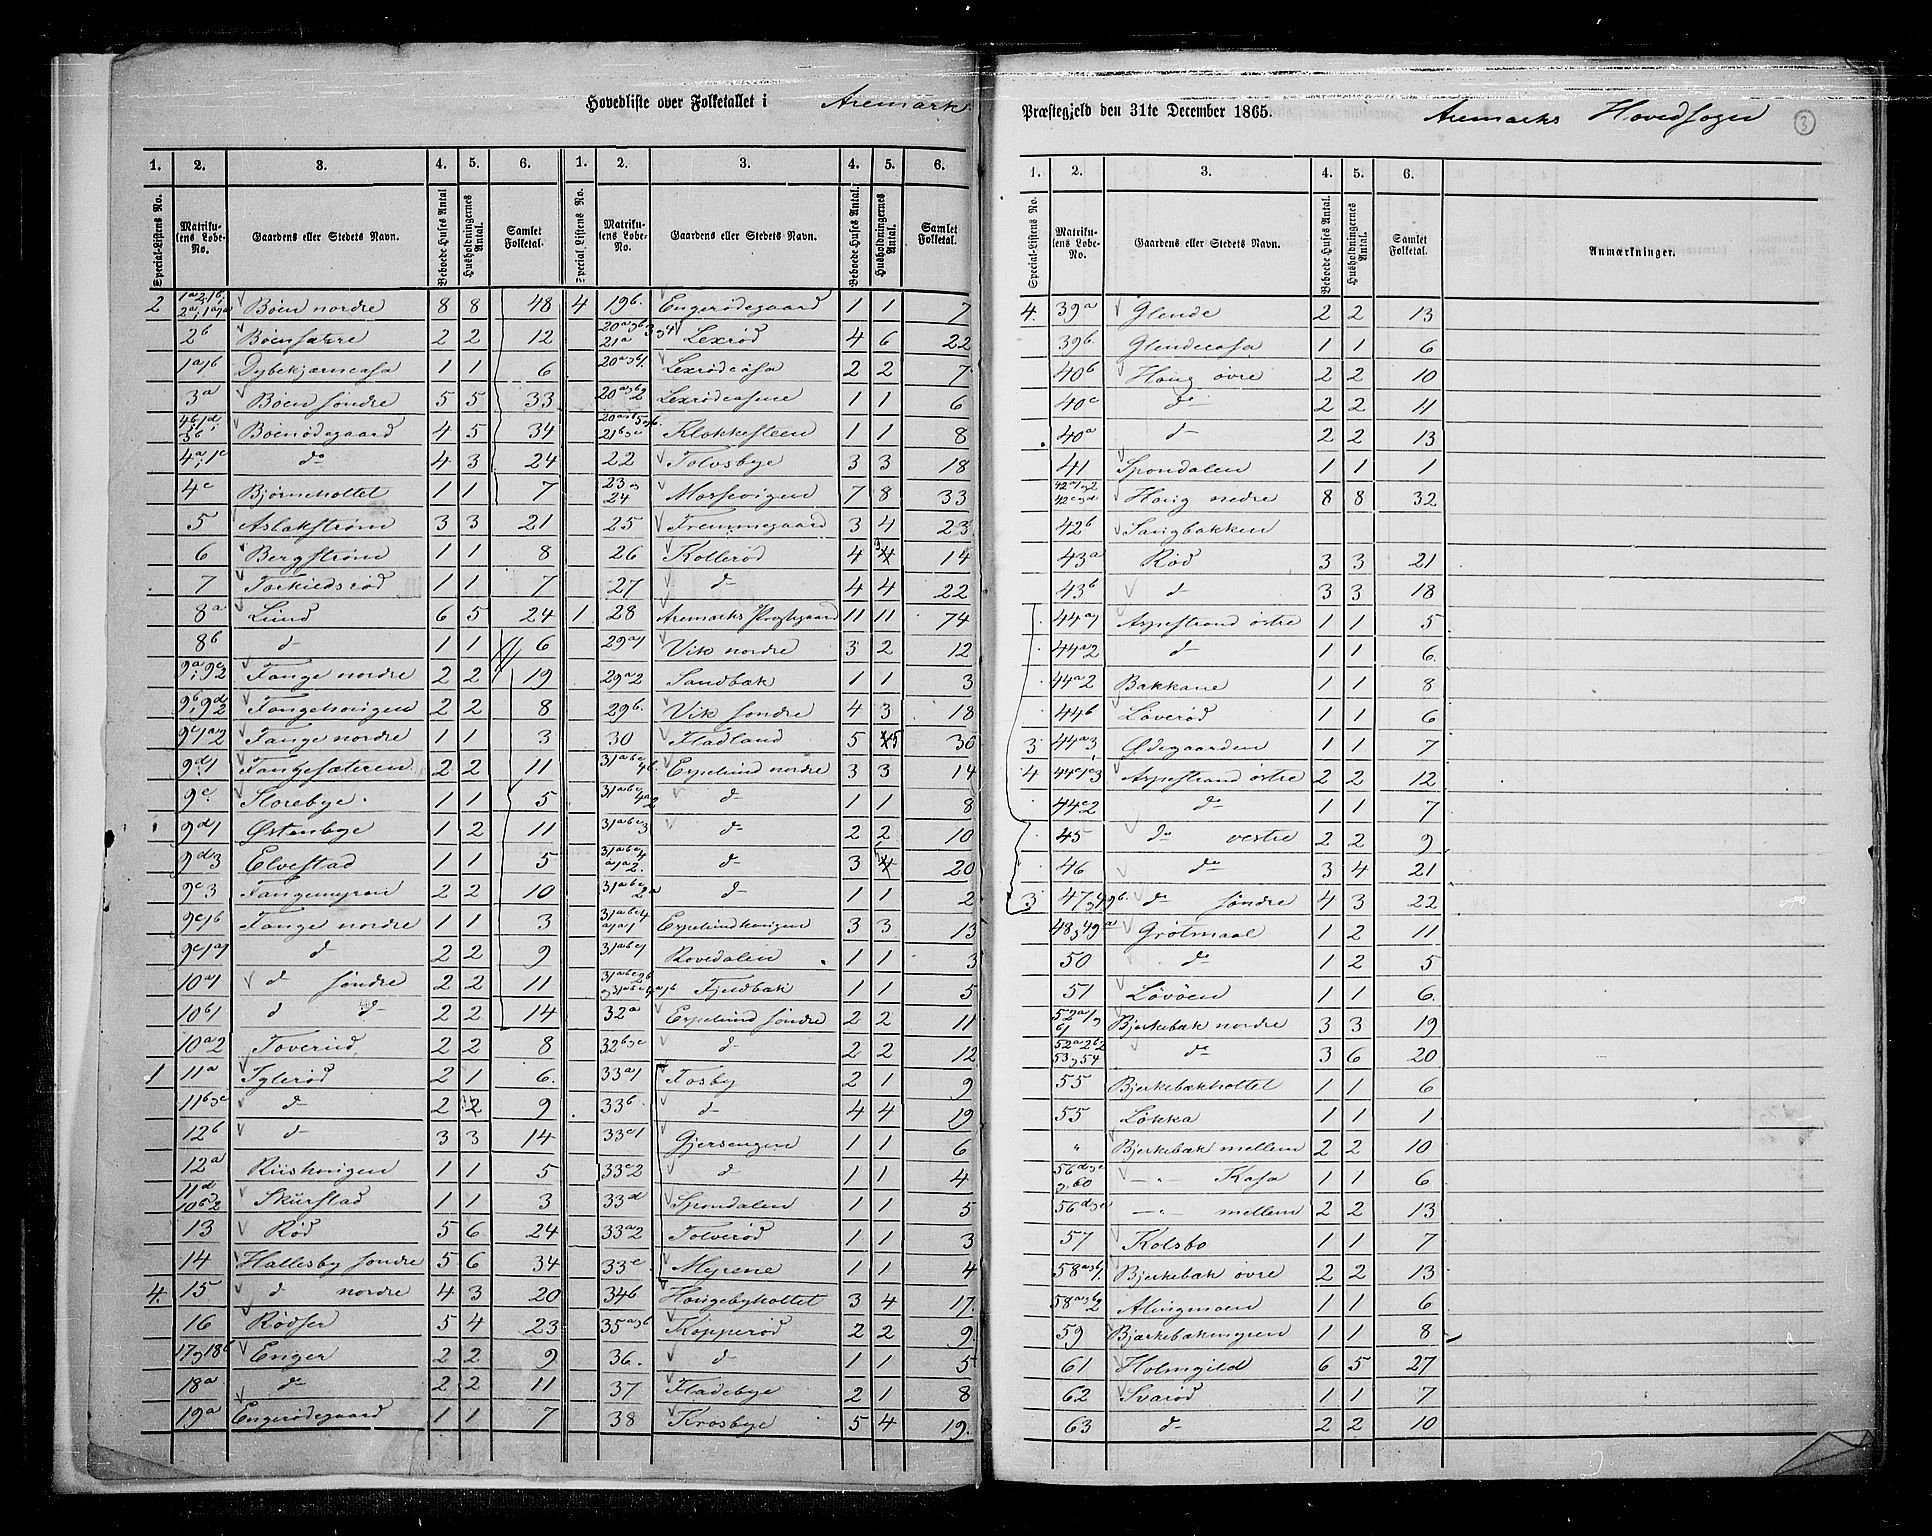 Hovedliste over Folketallet i Aremarks
Præstegjeld den 31te December 1865. Aremarks Hovedsogn 3
1. 2. 3. 4. 5. 6. 1. 2. 3. 4. 5. 6.
Special-Listens No. Matrikulens Løbe-No. Gaardens eller Stedets Navn. Beboede Huses Antal. Husholdningernes Antal. Samlet Folketal. Special-Listens No. Matrikulens Løbe-No. Gaardens eller Stedets Navn. Beboede Huses Antal. Husholdningernes Antal. Samlet Folketal.
2 Bøen nordre 8 8 48
2b Bøensætre 2 2 12
1a 1b Dybekjærncasa 1 1 6
3a Bøen søndre 5 5 33
Bøenødegaard 4 5 34
4a, 1c do 4 3 24
4c Bjørneholtet 1 1 7
5 Aslakstrøm 3 3 21
6 Bergstrøm 1 1 8
7 Torkildsrød 1 1 7
8a Lund 6 5 24
8b d 1 1 6
9a, 9c2 Tange nordre 2 2 19
9b, 9d2 Tangehøigen 2 2 8
9c1a2 Tange nordre 1 1 3
9d1 Tangesæteren 2 2 11
9c Storebye 1 1 5
9d1 Østenbye 1 2 11
9d3 Elvestad 1 1 5
9c3 Tangemyren 2 2 10
9c1b Tange nordre 1 1 3
9c1a1 d 2 2 9
10a1 d søndre 2 2 11
10b1 d d 2 2 14
10a2 Toverud 2 2 8
1 11a Tylerød 2 1 6
11b&c d 2 2 9
12b d 3 3 14
12a Riishøigen 1 1 5
11d 10b2 Skurstad 1 1 3
13 Rød 5 6 24
14 Hallesby søndre 5 6 34
4 15 d nordre 4 3 20
16 Rødser 5 4 23
17&18b Enger 2 2 9
18a do 2 2 11
19a Engerødegaard 1 1 7
4 19b Engerødegaard 1 1 7
21a Lexrød 4 6 22
Lexrødcasa 2 2 7
Lexrødcasene 1 1 6
Klokkesteen 1 1 8
22 Tolvsbye 3 3 18
23 og 24 Mosserigen 7 8 33
25 Fremmegaard 3 4 23
26 Kollerød 4 3 14
27 d 4 4 22
1 28 Aremarks Præstegaard 11 11 74
29a1 Vik nordre 3 2 12
29a2 Sandbæk 1 1 3
29b Vik søndre 4 3 18
30 Fladland 5 5 36
Espelund nordre 3 3 14
d 1 1 8
31abc3 d 2 2 10
d 3 20
d 1 1 2
Espelundhøigen 3 3 13
31abc1 Rovedalen 1 1 3
Fjeldbæk 1 1 5
32a Espelund søndre 2 2 11
32b&c d 2 2 12
33a1 Fosby 2 1 9
33b d 4 4 19
33c1 Gjersengen 1 1 6
33c2 d 1 1 4
33d Spondalen 1 1 5
33a2 Tolverød 1 1 3
33e Myrene 1 1 4
34b Hougebyholtet 3 4 17
35a&b Kopperød 2 2 9
36 d 1 1 5
37 Fladebye 2 1 8
38 Krosbye 5 4 19
1. 2. 3. 4. 5. 6.
Special-Listens No. Matrikulens Løbe-No. Gaardens eller Stedets Navn. Beboede Huses Antal. Husholdningernes Antal. Samlet Folketal. Anmærkninger.
4 39a Glende 2 2 13
39b Glendecasa 1 1 6
40b Houg øvre 2 2 10
40c do 2 2 11
40a d 2 2 13
41 Spondalen 1 1 1
Houg nedre 8 8 32
42b Sangbakken
43a Rød 3 3 21
43b d 3 3 18
44a1 Aspestrand østre 1 1 5
44a2 d 1 1 6
44a2 Bakkane 1 1 8
44b Løverød 1 1 6
3 44a3 Ødegaarden 1 1 7
4 44c1&3 Aspestrand østre 2 2 12
44c2 do 1 1 7
45 do vestre 2 2 9
46 do 3 4 21
3 47&49b do søndre 4 3 22
48&49a Grøtmaal 1 2 11
50 do 1 2 5
51 Løvøen 1 1 6
Bjerkebæk nordre 3 3 19
53&54 do 3 6 20
55 Bjerkebækholtet 1 1 6
55 Løkka 1 1 1
" Bjerkebæk mellem 2 2 10
56d&e &60 — " — Kasa 1 1 6
56d&e — " — mellem 2 2 13
57 Kolsbo 1 1 7
58a&b1 Bjerkebæk øvre 2 2 13
58a&b2 Alingmoen 1 1 6
59 Bjerkebækmyren 1 1 8
61 Holmgild 6 5 27
62 Svarød 1 1 7
63 d 2 2 10